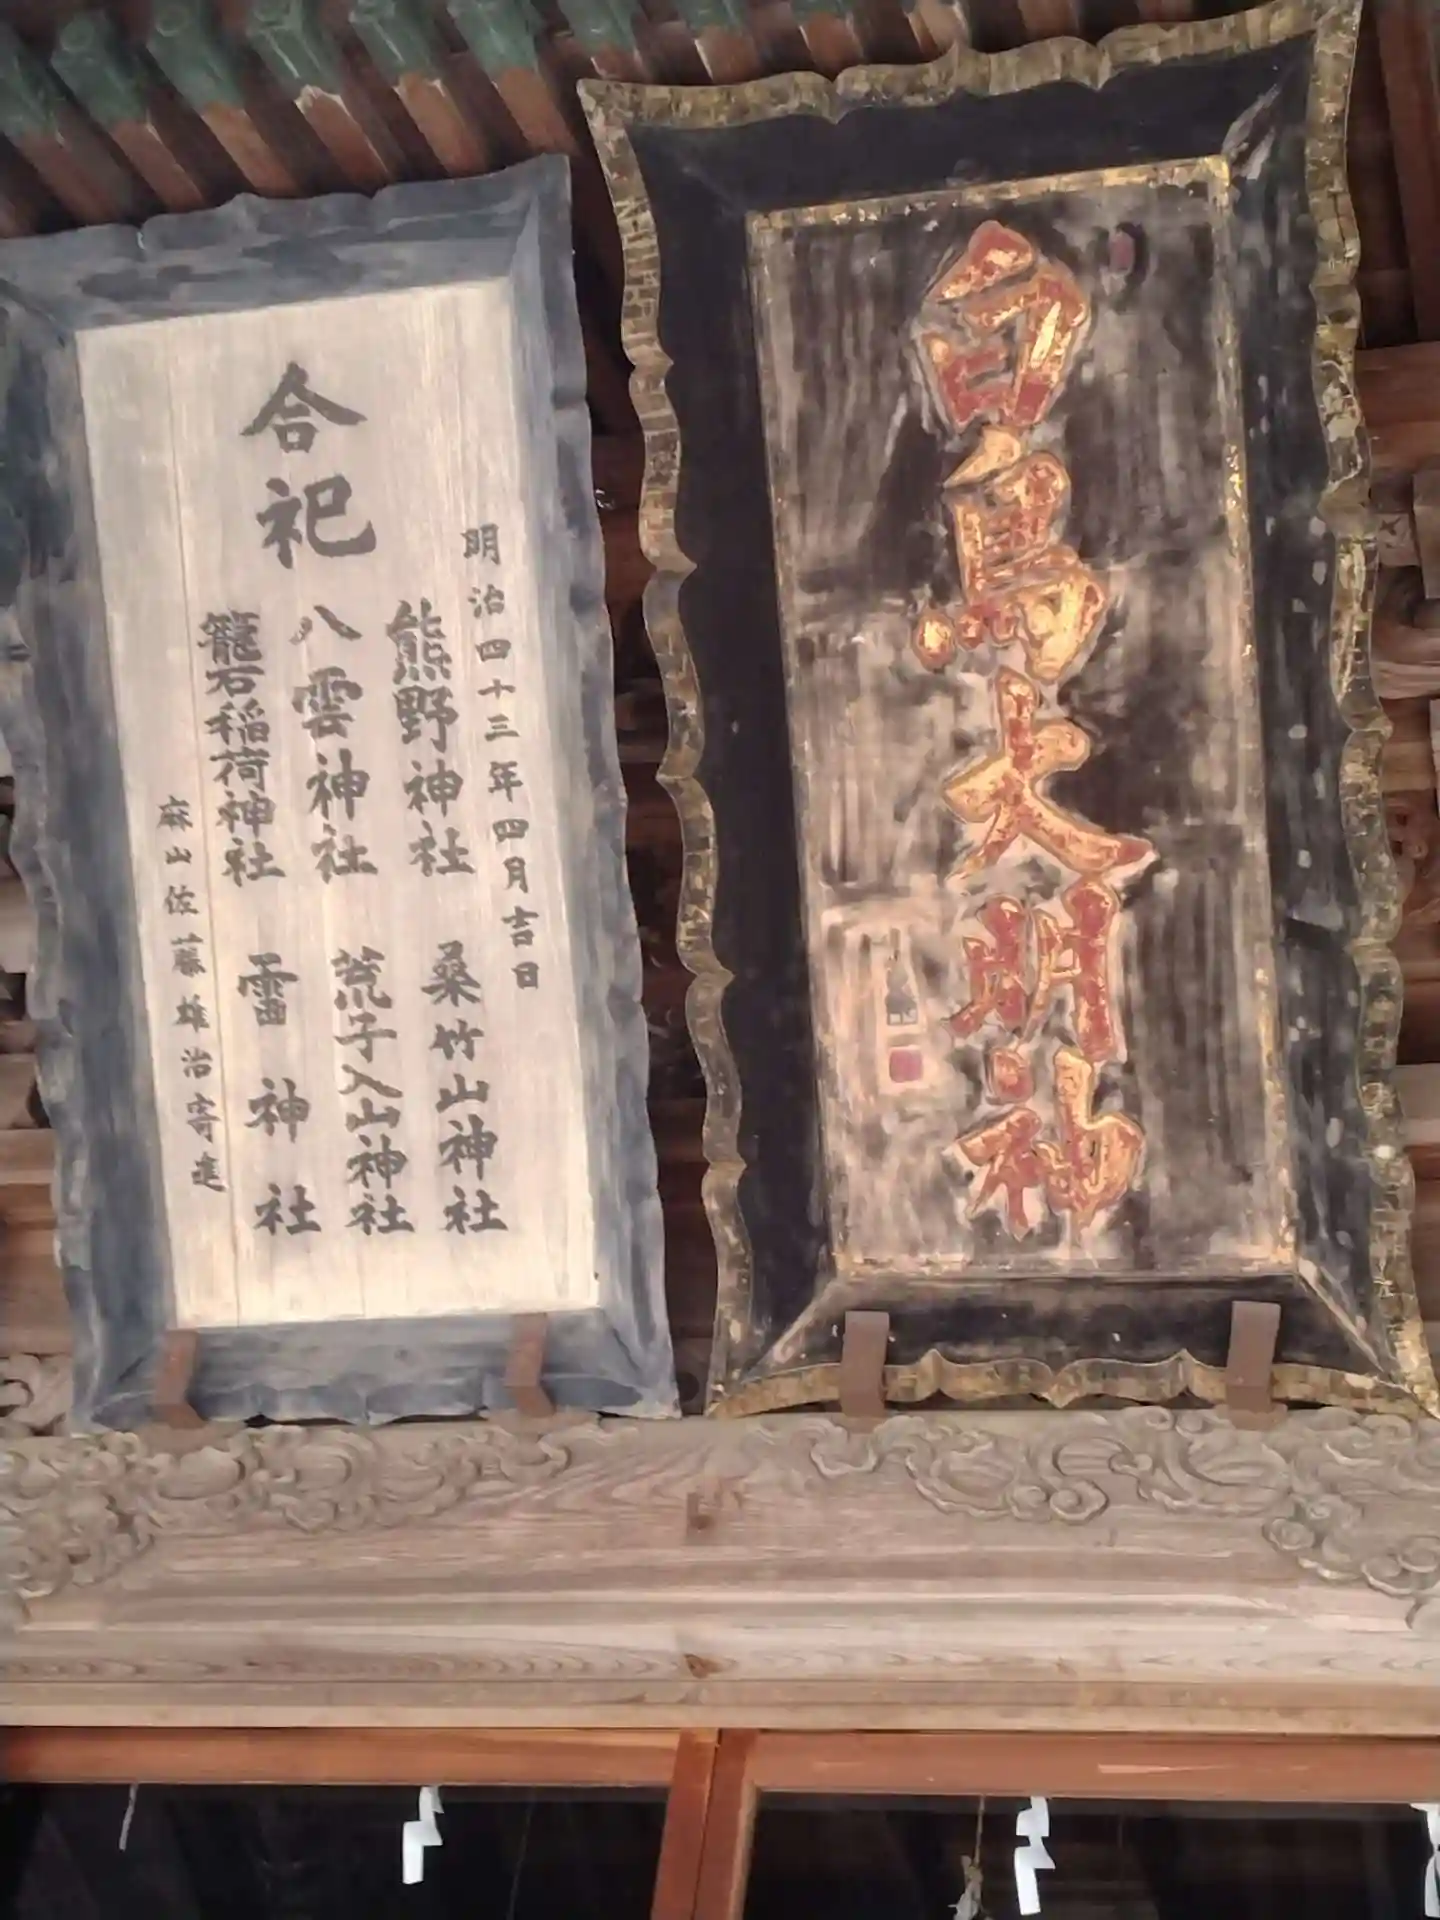 白鳥大明神
明治四十三年四月吉日
合祀
熊野神社
桑竹山神社
八雲神社
荒子入山神社
籠石稲荷神社
雷神社
麻山佐藤雄治寄進